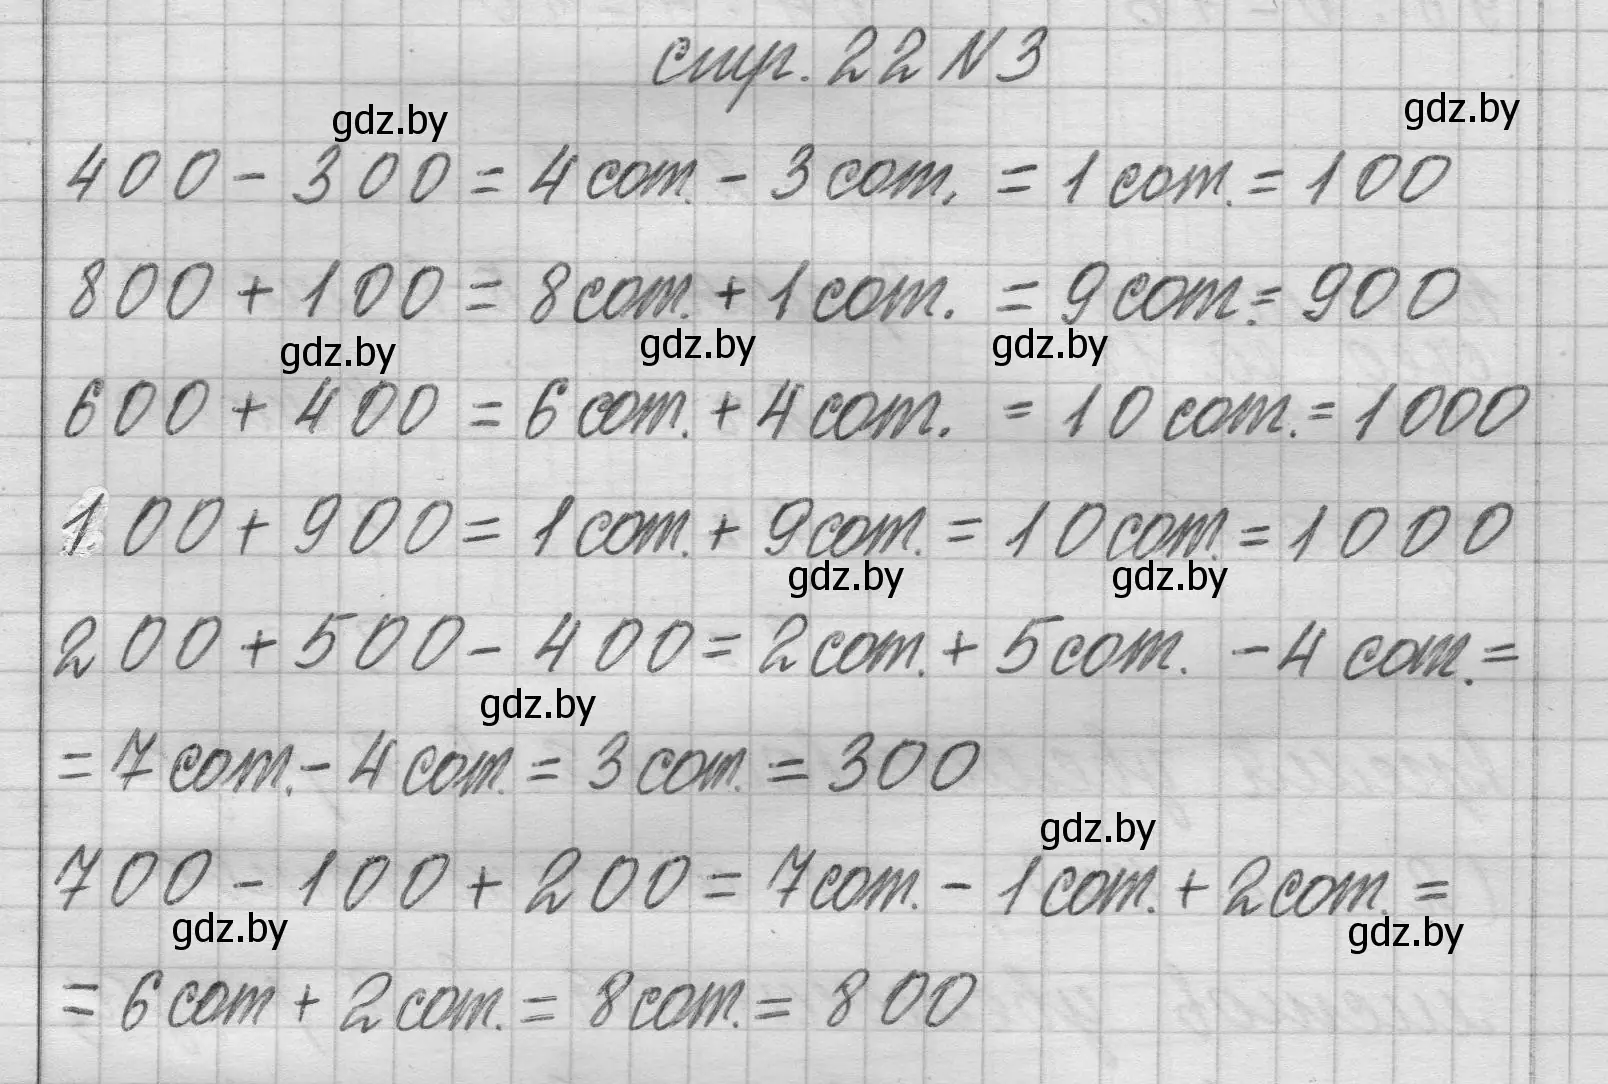 стр. 22 N 3
gdz.by gdz.by
400 - 300 = 4 сот. - 3 сот. = 1 сот. = 100
800 + 100 = 8 сот. + 1 сот. = 9 сот. = 900
gdz.by gdz.by gdz.by
600 + 400 = 6 сот. + 4 сот. = 10 сот. = 1000
100 + 900 = 1 сот. + 9 сот. = 10 сот. = 1000
gdz.by gdz.by
200 + 500 - 400 = 2 сот. + 5 сот. - 4 сот. =
gdz.by
= 7 сот. - 4 сот. = 3 сот. = 300
gdz.by
700 - 100 + 200 = 7 сот. - 1 сот. + 2 сот. =
gdz.by gdz.by
= 6 сот + 2 сот. = 8 сот. = 800